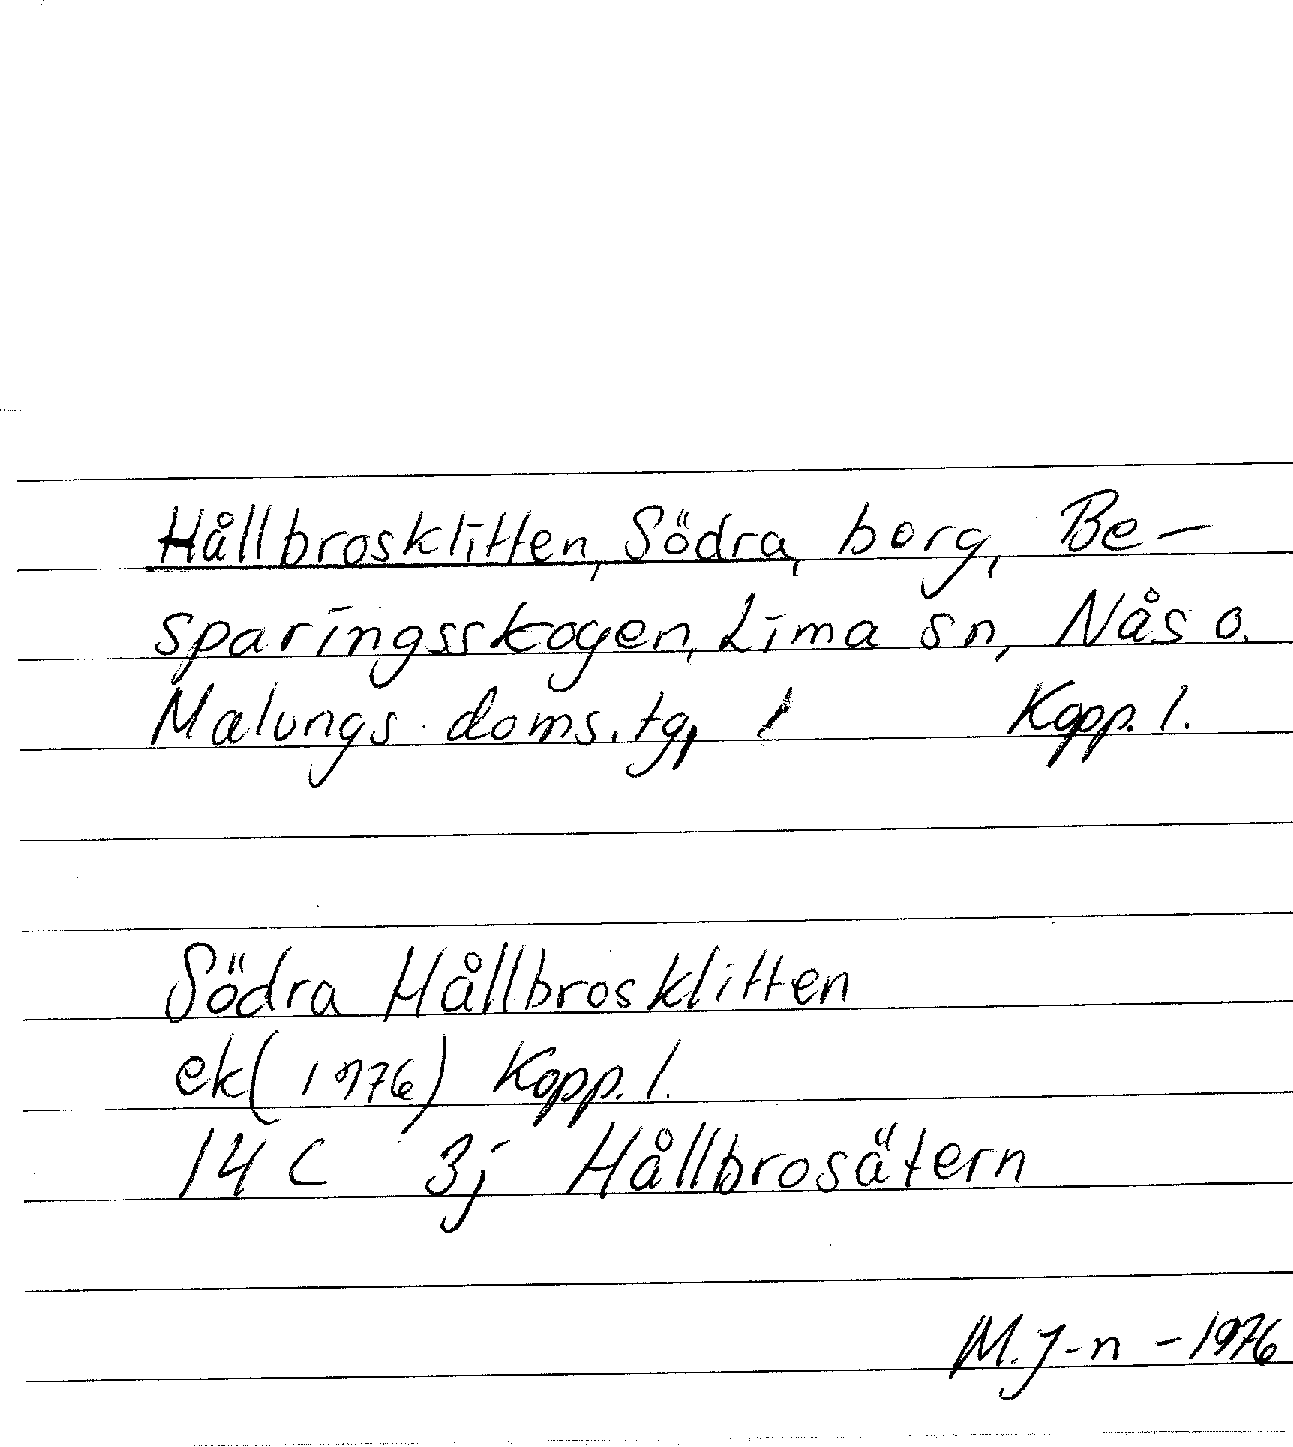 Hållbrosklitten, Södra, berg, Be-
sparingsskogen, Lima sn, Nås o.
Malungs doms.tg, Kopp. l.
Södra Hållbrosklitten
ek (1976) Kopp. l.
14 C 3j Hållbrosätern
M. J-n - 1976